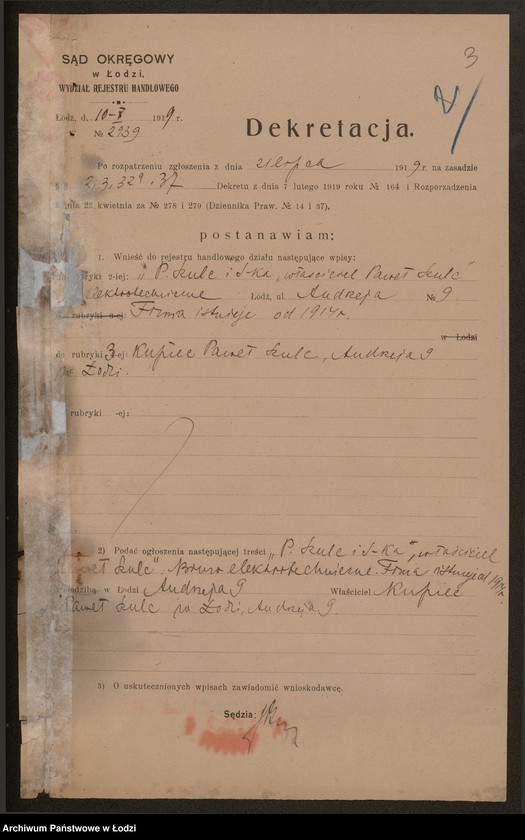 3
SĄD OKRĘGOWY
w Łodzi,
WYDZIAŁ REJESTRU HANDLOWEGO
Łódź, d. 10-X 1919 r.
№ 2939
Dekretacja.
Po rozpatrzeniu zgłoszenia z dnia 21 lipca 1919 r. na zasadzie
2, 3, 32 37 Dekretu z dnia 7 lutego 1919 roku № 164 i Rozporządzenia
dnia 22 kwietnia za № 278 i 279 (Dziennika Praw. № 14 i 37).
postanawiam:
1. Wnieść do rejestru handlowego działu następujące wpisy:
rubryki 2-iej: „P. Szulc i S-ka, właściciel Paweł Szulc”
elektrotechniczne Łódź, ul. Andrzeja № 9
rubryki -ej: Firma istnieje od 1914 r.
w Łodzi
do rubryki 3-ej: Kupiec Paweł Szulc, Andrzeja 9
Łodzi.
rubryki -ej:
2) Podać ogłoszenia następującej treści „P. Szulc i S-ka”, właściciel
Szulc” Biuro elektrotechniczne. Firma istnieje od 1914 r.
w Łodzi Andrzeja 9 Właściciel Kupiec
Paweł Szulc w Łodzi, Andrzeja 9.
3) O uskutecznionych wpisach zawiadomić wnioskodawcę.
Sędzia:
Archiwum Państwowe w Łodzi